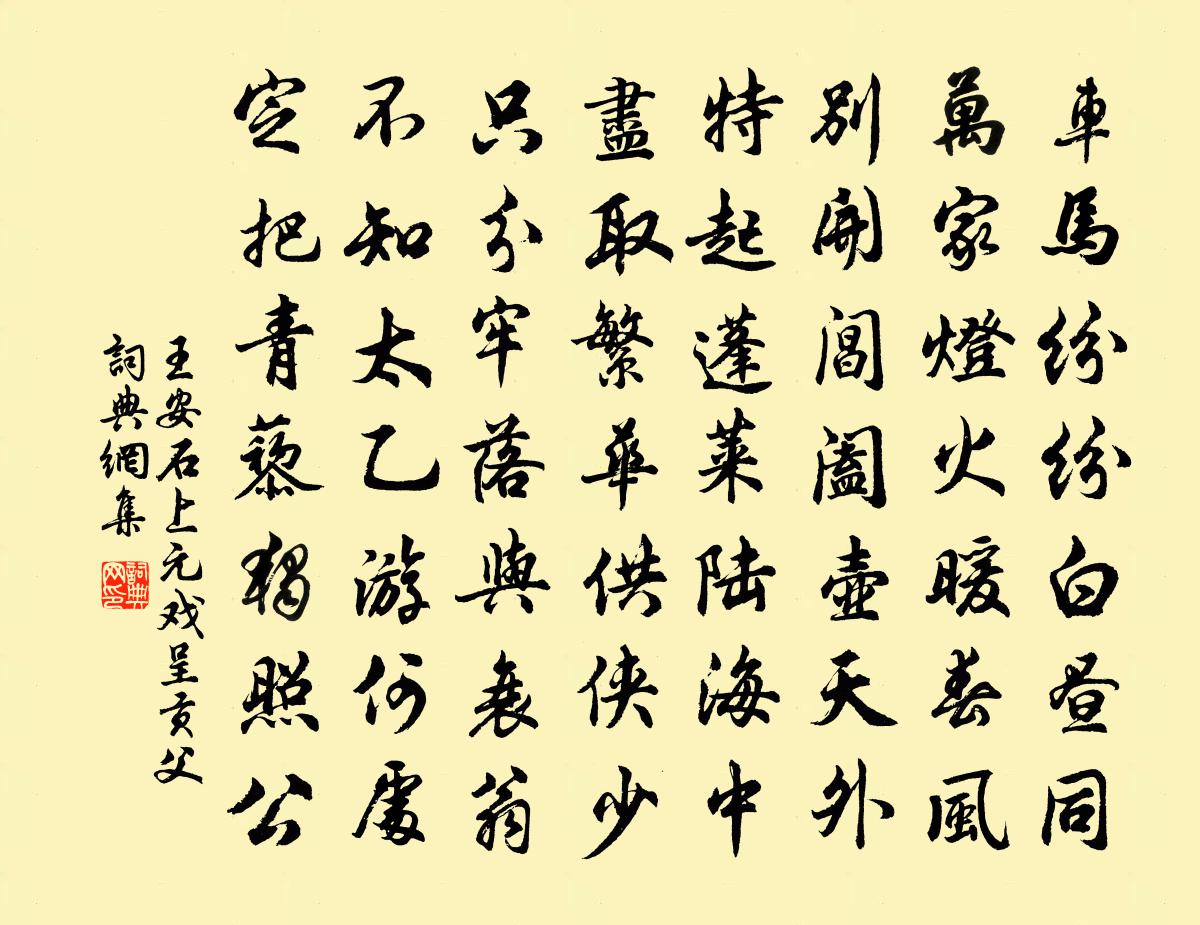 車馬紛紛白昼同
萬家燈火暖春風
別開閶闔壺天外
特起蓬萊陸海中
盡取繁華供俠少
只分牢落與衰翁
不知太乙游何處
定把青藜獨照公
王安石上元戏呈贡父
詞典網集
詞典
网印